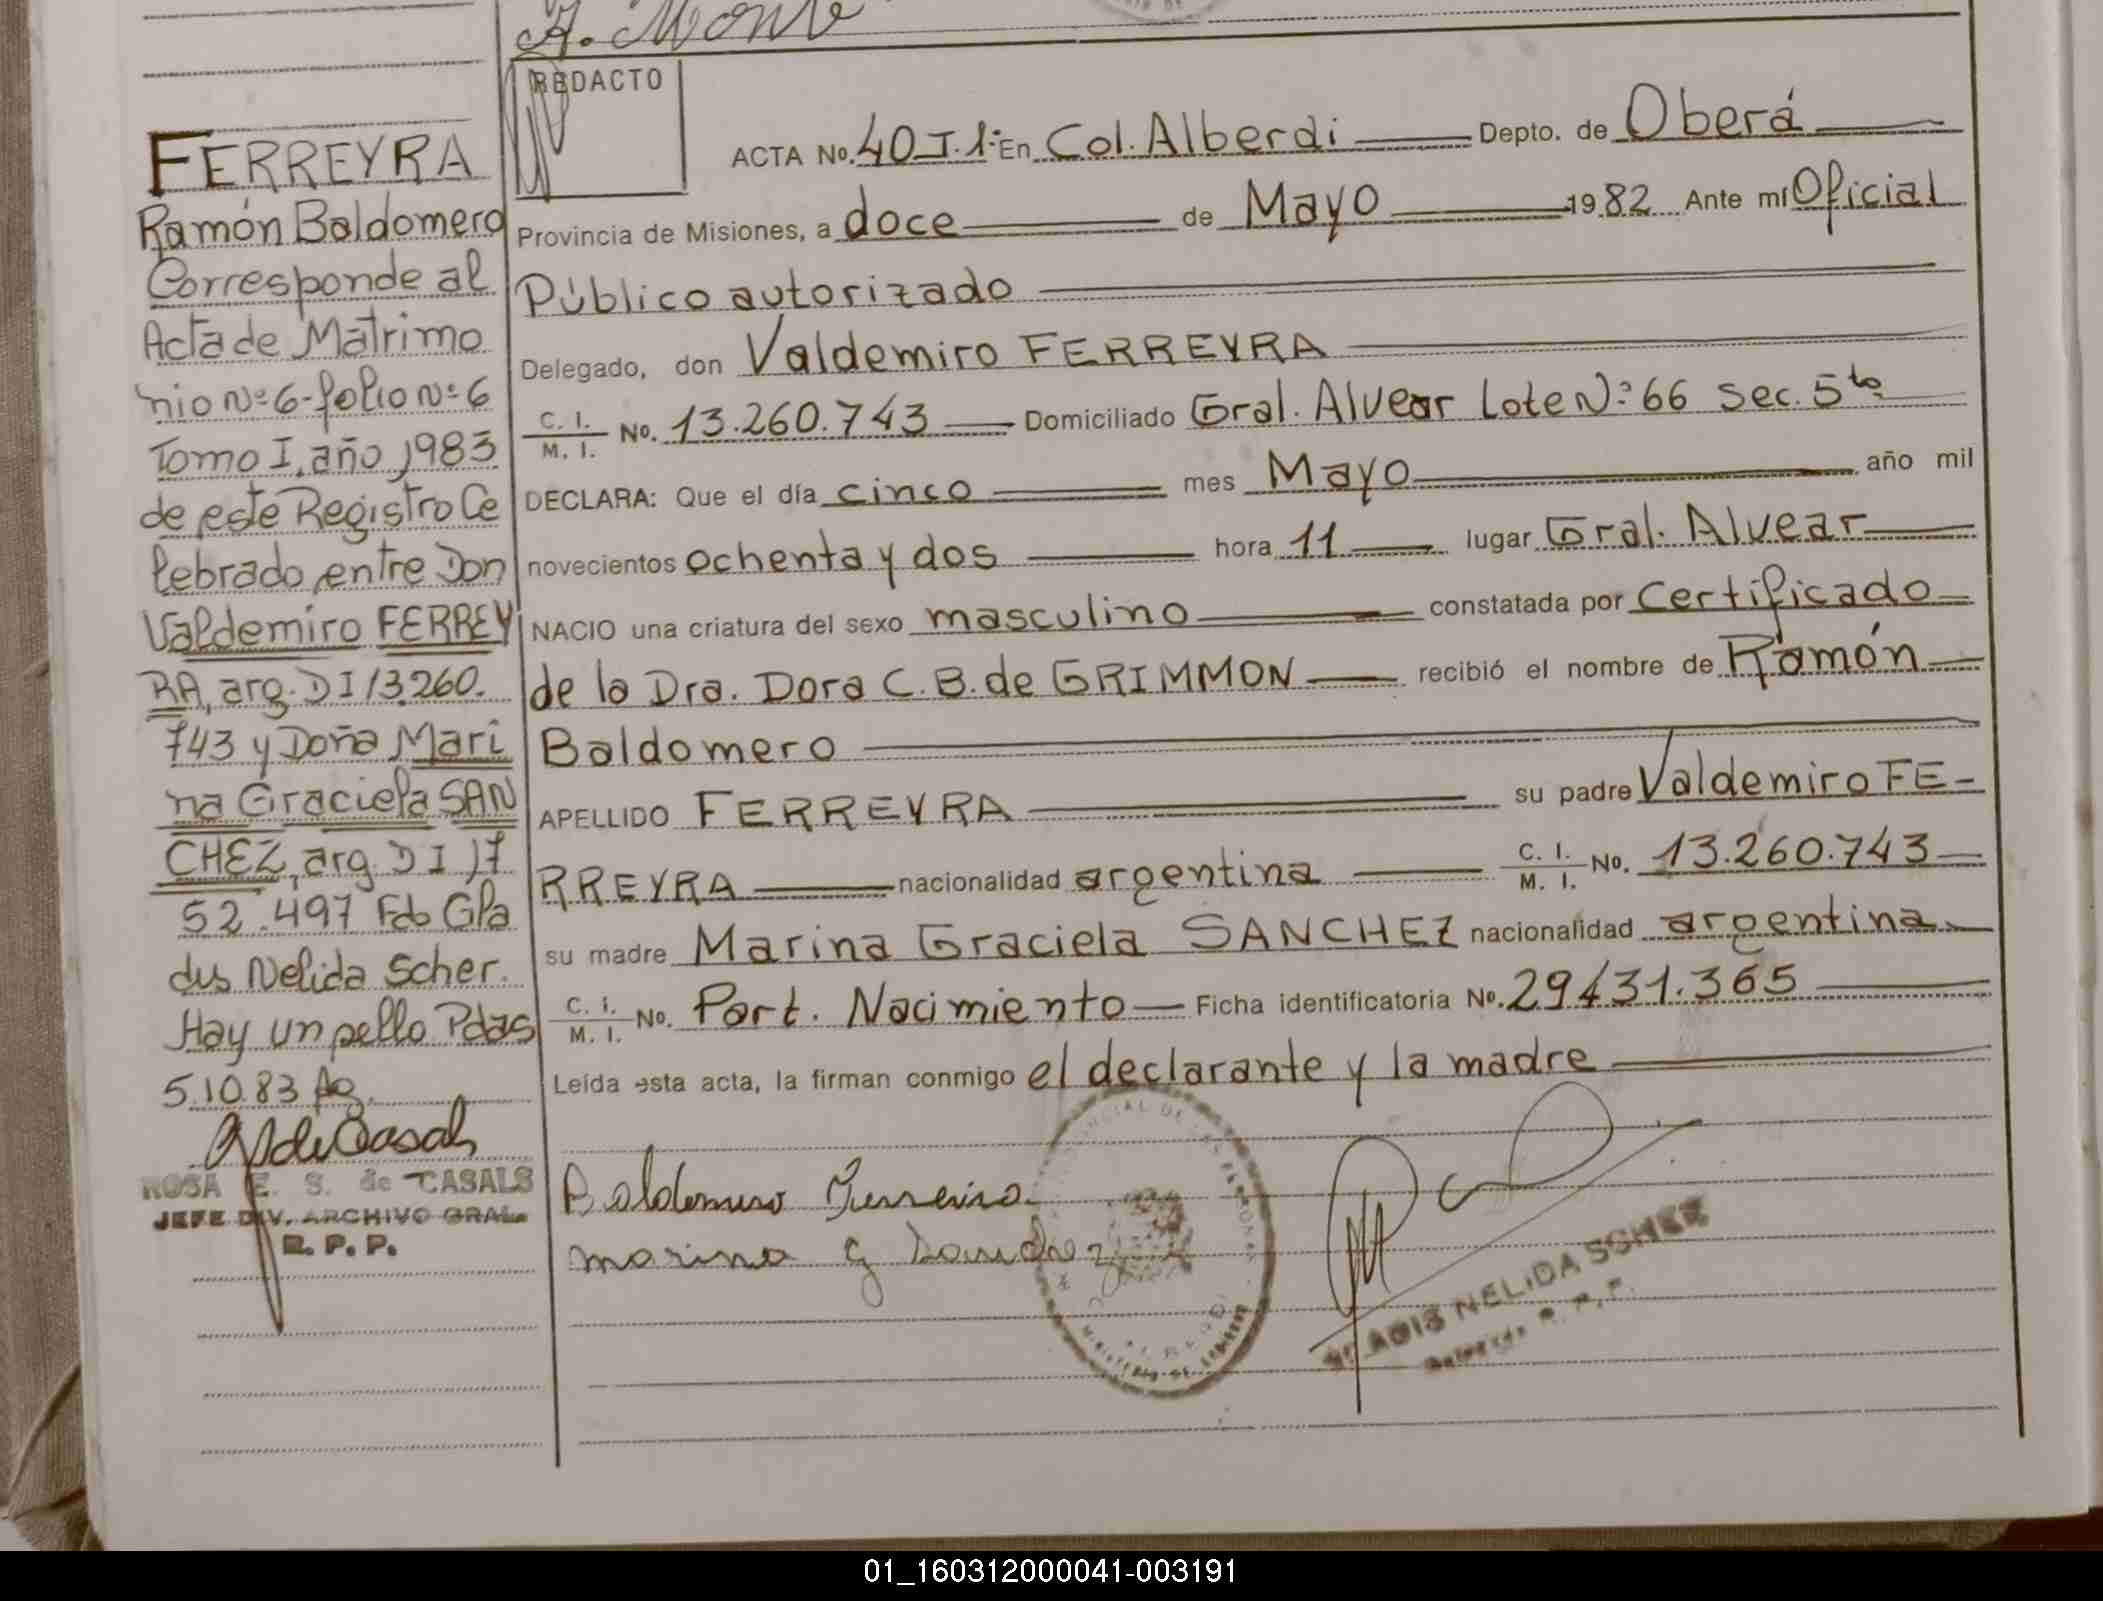 A. Mont
REDACTO
ACTA No. 40 T. 1º En Col. Alberdi Depto. de Oberá
Provincia de Misiones, a doce de Mayo 1982 Ante mí Oficial
Público autorizado
Delegado, don Valdemiro FERREYRA
C. I. / M. I. No. 13.260.743 Domiciliado Gral. Alvear Lote Nº 66 Sec. 5ta
DECLARA: Que el día cinco mes Mayo año mil
novecientos ochenta y dos hora 11 lugar Gral. Alvear
NACIO una criatura del sexo masculino constatada por Certificado
de la Dra. Dora C. B. de GRIMMON recibió el nombre de Ramón
Baldomero
APELLIDO FERREYRA su padre Valdemiro FE-
RREYRA nacionalidad argentina C. I. / M. I. No. 13.260.743
su madre Marina Graciela SANCHEZ nacionalidad argentina
C. I. / M. I. No. Part. Nacimiento Ficha identificatoria Nº. 29131.365
Leída esta acta, la firman conmigo el declarante y la madre
Baldemiro Ferreira
marina g Sanchez
GLADIS NELIDA SCHER
Delegada R. P. P.
FERREYRA
Ramón Baldomero
Corresponde al
Acta de Matrimo
nio Nº 6-folio Nº 6
Tomo I, año 1983
de este Registro Ce
lebrado entre Don
Valdemiro FERREY
RA, arg. DI 13.260.
743 y Doña Mari
na Graciela SAN
CHEZ, arg. DI 17
52.497 Fdo Gla
dys Nelida Scher.
Hay un sello Pdas
5.10.83
ROSA E. S. de CASALS
JEFE DIV. ARCHIVO GRAL.
R. P. P.
01_160312000041-003191